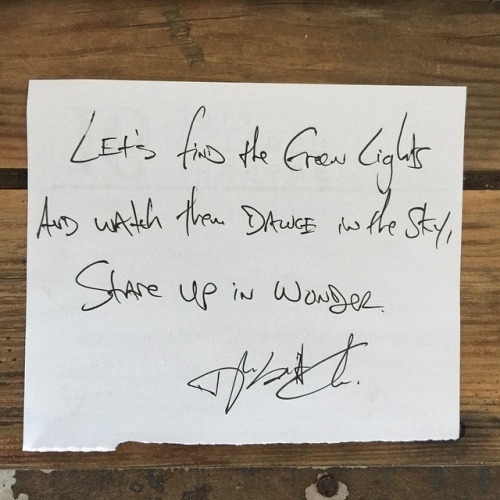 Let's find the Green Lights
And watch them DANCE in the Sky,
Stare up in WONDER.